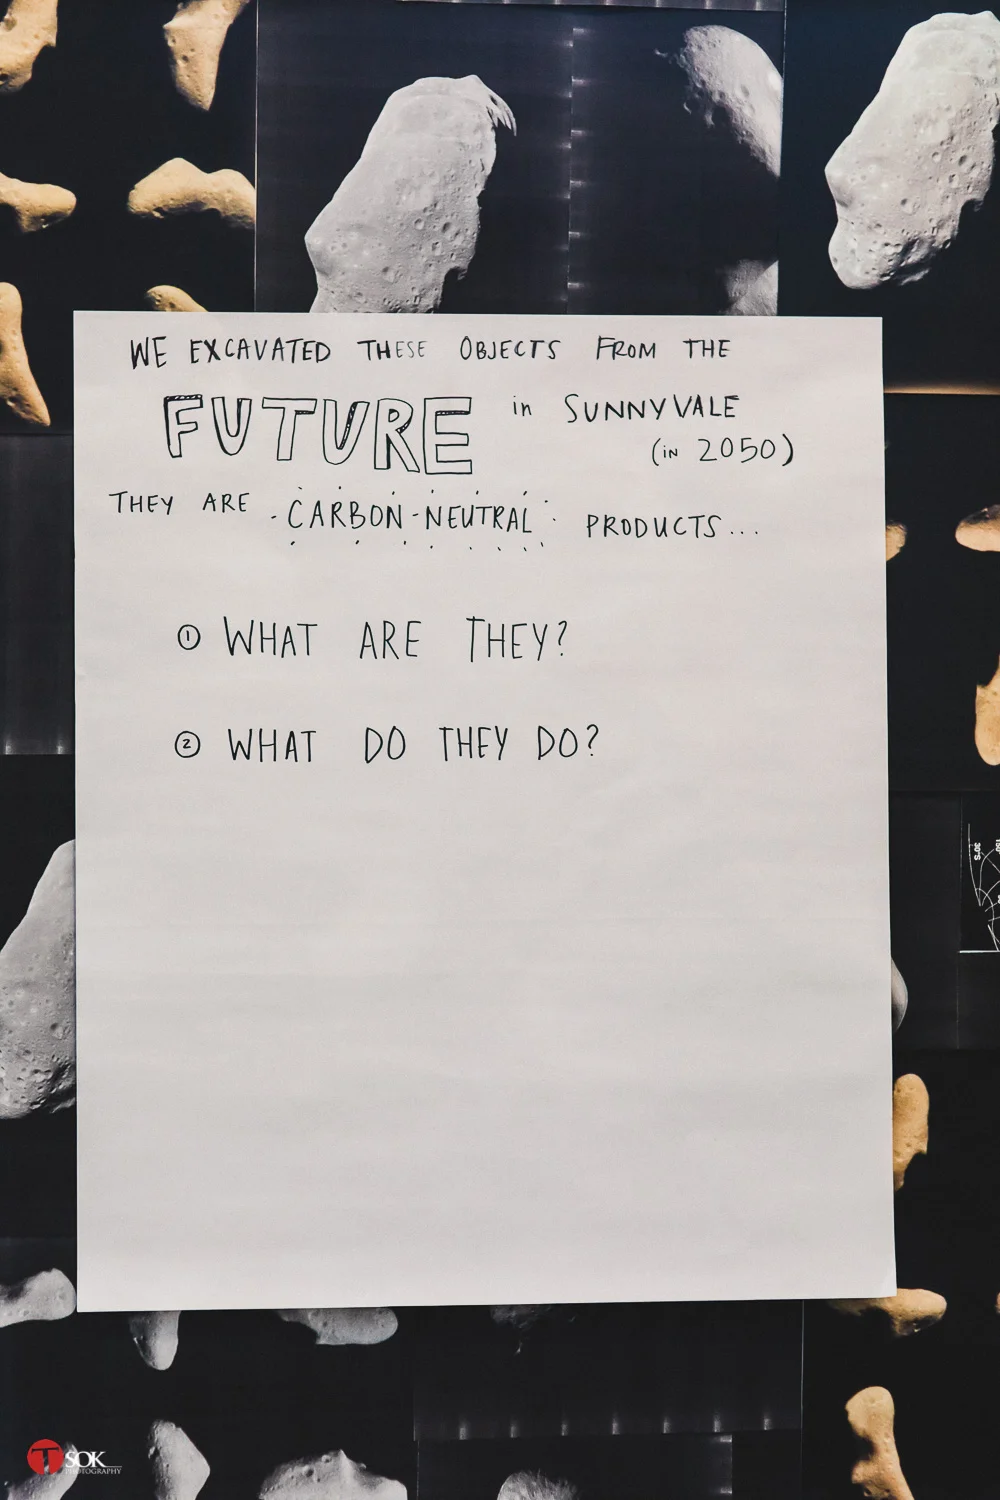 WE EXCAVATED THESE OBJECTS FROM THE
FUTURE in SUNNYVALE
(IN 2050)
THEY ARE CARBON-NEUTRAL PRODUCTS...
① WHAT ARE THEY?
② WHAT DO THEY DO?
30°S
150°
T SOK
PHOTOGRAPHY